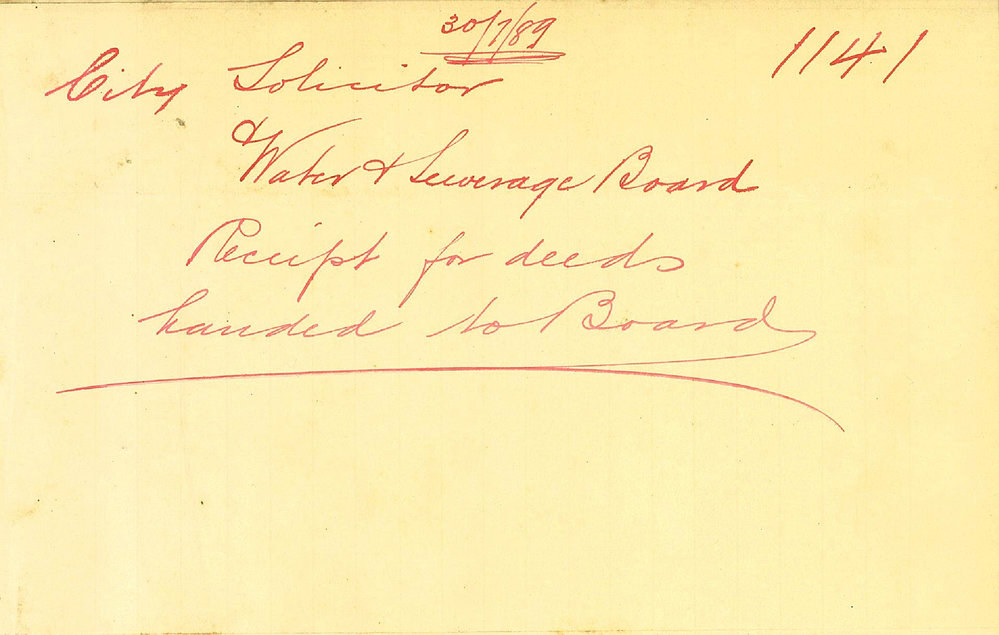 30/7/89
1141
City Solicitor
&
Water & Sewerage Board
Receipt for deeds
handed to Board